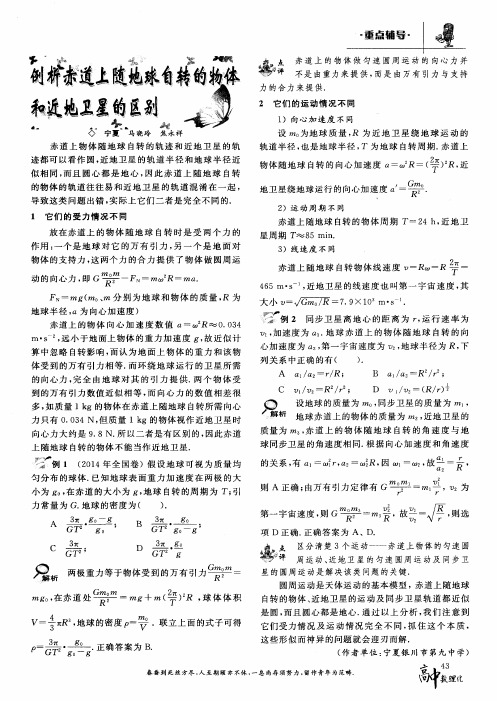 ·重点辅导·
例析赤道上随地球自转的物体
和近地卫星的区别
◇ 宁夏 马晓玲 焦永祥
赤道上物体随地球自转的轨迹和近地卫星的轨
迹都可以看作圆,近地卫星的轨道半径和地球半径近
似相同,而且圆心都是地心,因此赤道上随地球自转
的物体的轨道往往易和近地卫星的轨道混淆在一起,
导致这类问题出错,实际上它们二者是完全不同的.
1 它们的受力情况不同
放在赤道上的物体随地球自转时是受两个力的
作用:一个是地球对它的万有引力,另一个是地面对
物体的支持力,这两个力的合力提供了物体做圆周运
动的向心力,即 G m₀m/R² −F_N=mω²R=ma.
F_N=mg(m₀、m 分别为地球和物体的质量,R 为
地球半径,a 为向心加速度)
赤道上的物体向心加速度数值 a=ω²R≈0.034
m·s⁻²,远小于地面上物体的重力加速度 g,故近似计
算中忽略自转影响,而认为地面上物体的重力和该物
体受到的万有引力相等.而环绕地球运行的卫星所需
的向心力,完全由地球对其的引力提供.两个物体受
到的万有引力数值近似相等,而向心力的数值相差很
多,如质量 1 kg的物体在赤道上随地球自转所需向心
力只有 0.034 N,但质量 1 kg的物体视作近地卫星时
向心力大约是 9.8 N.所以二者是有区别的,因此赤道
上随地球自转的物体不能当作近地卫星.
例 1 (2014 年全国卷)假设地球可视为质量均
匀分布的球体.已知地球表面重力加速度在两极的大
小为 g₀,在赤道的大小为 g,地球自转的周期为 T;引
力常量为 G.地球的密度为( ).
A 3π/GT² · (g₀−g)/g₀; B 3π/GT² · g₀/(g₀−g);
C 3π/GT²; D 3π/GT² · g₀/g
解析 两极重力等于物体受到的万有引力 Gm₀m/R² =
mg₀,在赤道处 Gm₀m/R² =mg+m(2π/T)²R ,球体体积
V=4/3 πR³,地球的密度 ρ=m₀/V . 联立上面的式子可得
ρ=3π/GT² · g₀/(g₀−g).正确答案为 B.
点评 赤道上的物体做匀速圆周运动的向心力并
不是由重力来提供,而是由万有引力与支持
力的合力来提供.
2 它们的运动情况不同
1) 向心加速度不同
设 m₀为地球质量,R 为近地卫星绕地球运动的
轨道半径,也是地球半径,T 为地球自转周期.赤道上
物体随地球自转的向心加速度 a=ω²R=(2π/T)²R,近
地卫星绕地球运行的向心加速度 a′=Gm₀/R².
2) 运动周期不同
赤道上随地球自转的物体周期 T=24 h,近地卫
星周期 T≈85 min.
3) 线速度不同
赤道上随地球自转物体线速度 v=Rω=R 2π/T =
465 m·s⁻¹,近地卫星的线速度也叫第一宇宙速度,其
大小 v=√(Gm₀/R)=7.9×10³ m·s⁻¹.
例 2 同步卫星离地心的距离为 r,运行速率为
v₁,加速度为 a₁.地球赤道上的物体随地球自转的向
心加速度为 a₂,第一宇宙速度为 v₂,地球半径为 R,下
列关系中正确的有( ).
A a₁/a₂=r/R; B a₁/a₂=R²/r²;
C v₁/v₂=R²/r²; D v₁/v₂=(R/r)^½
解析 设地球的质量为 m₀,同步卫星的质量为 m₁,
地球赤道上的物体的质量为 m₂,近地卫星的
质量为 m₃,赤道上的物体随地球自转的角速度与地
球同步卫星的角速度相同.根据向心加速度和角速度
的关系,有 a₁=ω₁²r,a₂=ω₂²R,因 ω₁=ω₂,故 a₁/a₂=r/R,
则 A 正确;由万有引力定律有 G m₀m₁/r² =m₁ v₁²/r, v₂ 为
第一宇宙速度,则 G m₀m₃/R² =m₃ v₂²/R, 故 v₁/v₂=√(R/r),则选
项 D 正确.正确答案为 A、D.
点评 区分清楚 3 个运动——赤道上物体的匀速圆
周运动、近地卫星的匀速圆周运动及同步卫
星的圆周运动是解决该类问题的关键.
圆周运动是天体运动的基本模型,赤道上随地球
自转的物体、近地卫星的运动及同步卫星轨道都近似
是圆,而且圆心都是地心.通过以上分析,我们注意到
它们受力情况及运动情况完全不同,抓住这个本质,
这些形似而神异的问题就会迎刃而解.
(作者单位:宁夏银川市第九中学)
春蚕到死丝方尽,人至期颐亦不休,一息尚存须努力,留作青年为范畴.
43
高中数理化